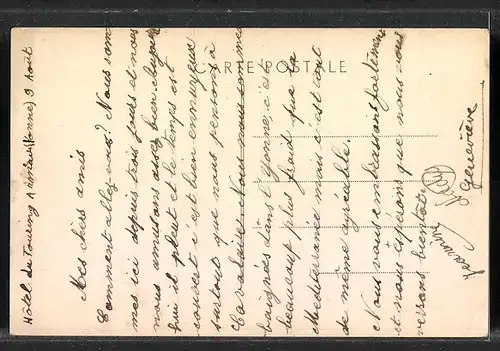 Hôtel du Touring Avallon (Yonne) 9 Août
CARTE POSTALE
Mes chers amis
Comment allez vous? Nous som
mes ici depuis trois jours et nous
nous amusons assez bien. Aujour
hui il pleut et le temps est
couvert c'est bien ennuyeux
surtout que nous pensons à
Cavalaire. Nous nous sommes
baignés dans l'Yonne, c'est
beaucoup plus froid que la
Mediterranée mais c'est tout
de même agréable.
Nous vous embrassons fortement
et nous espérons que nous nous
verrons bientôt
Geneviève